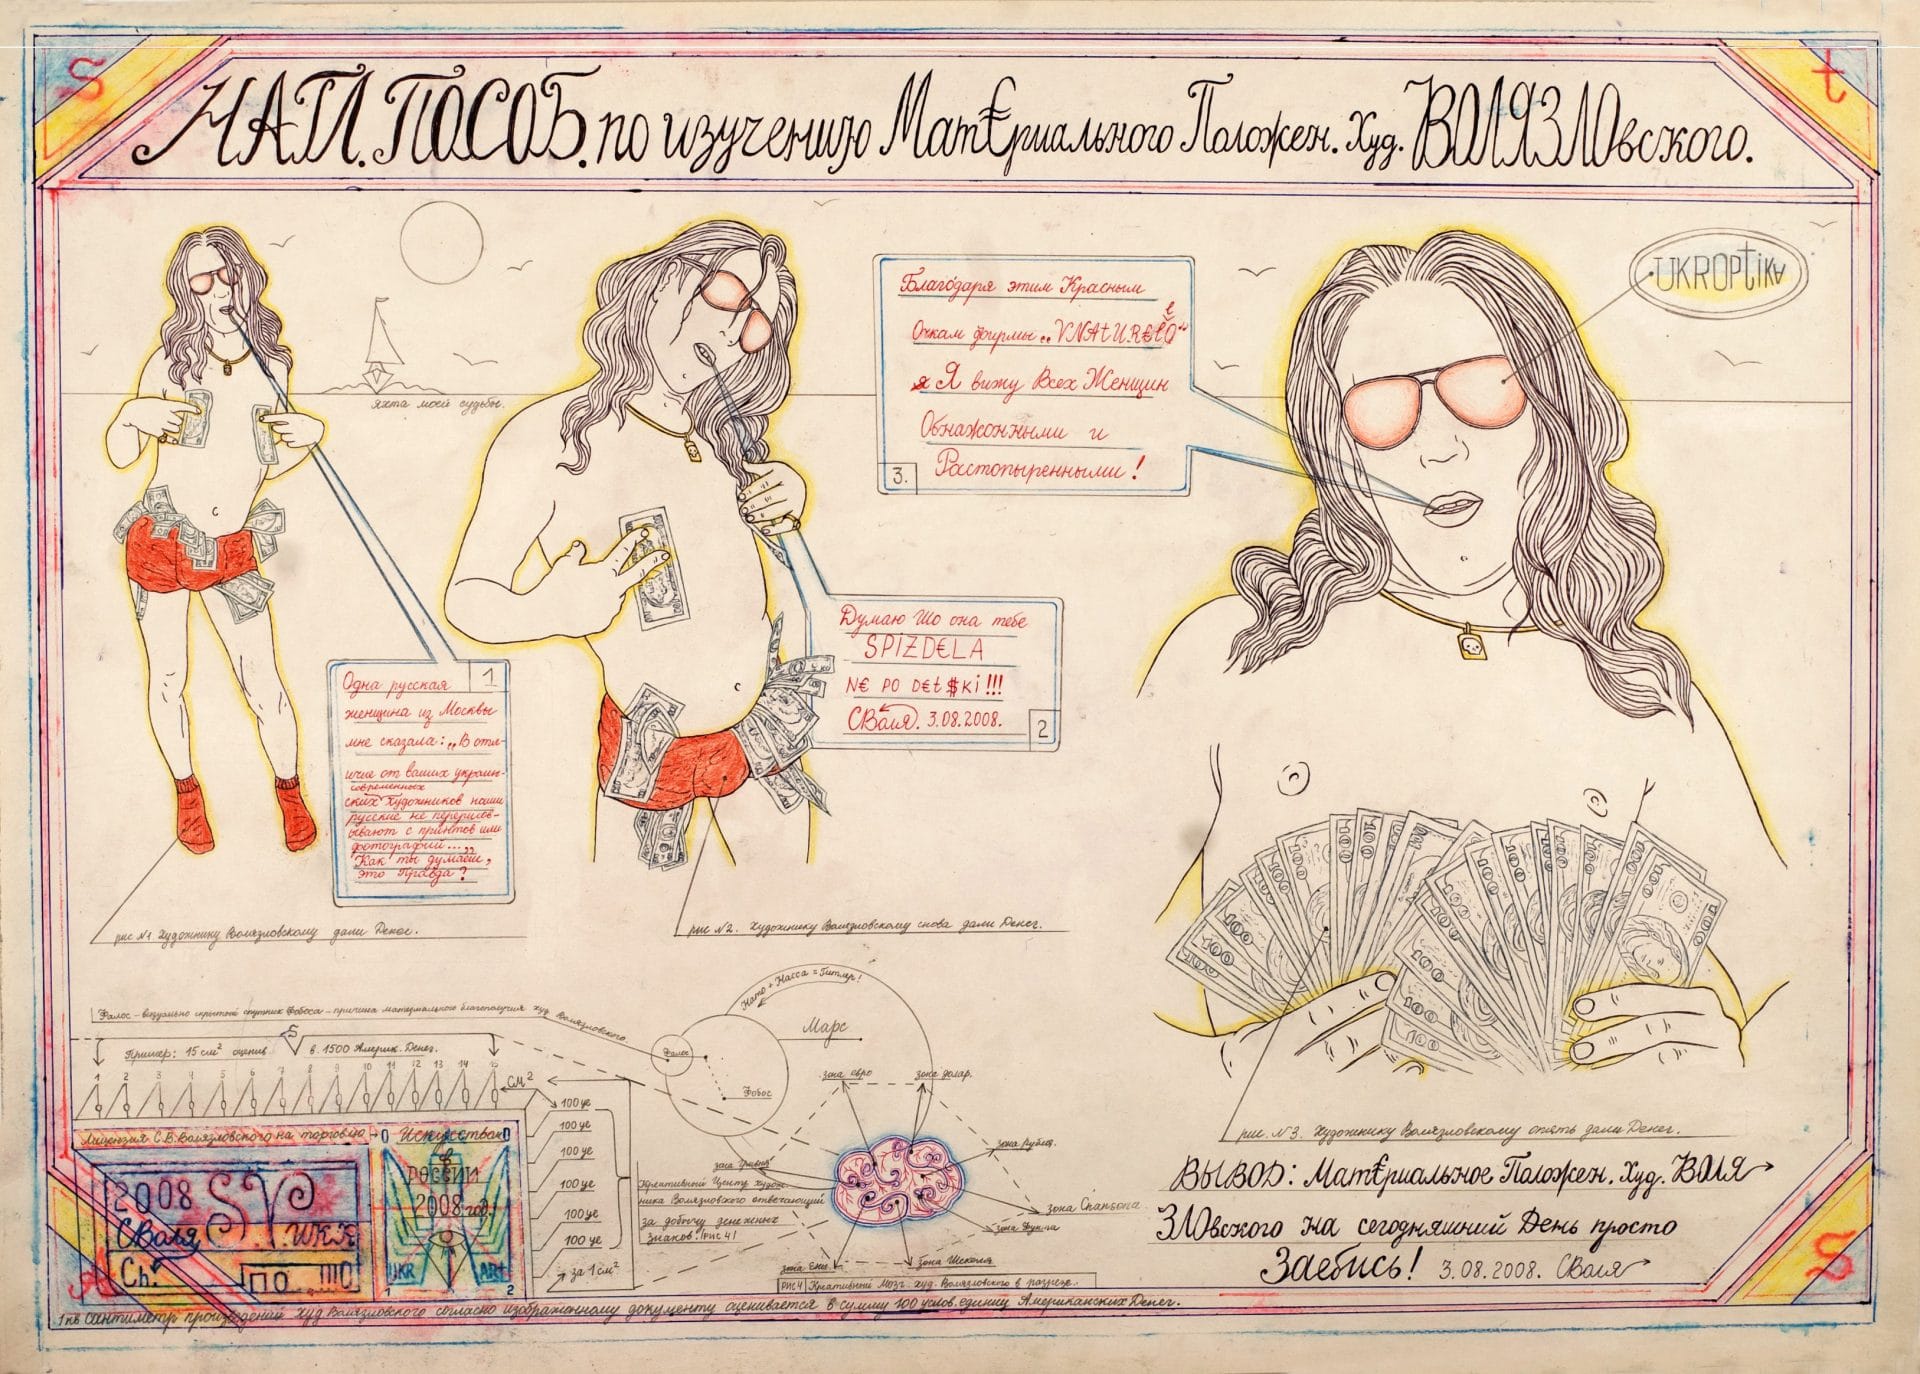 S
t
НАГЛ. ПОСОБ. по изучению Мат€риального Положен. Худ. ВОЛЯЗЛОвского.
UKROPtiKA
яхта моей судьбы.
Благодаря этим Красным
Очкам фирмы „VNAtUR€LO“
Я вижу Всех Женщин
Обнажонными и
Растопыренными!
3.
Думаю Шо она тебе
SPIZD€LA
N€ PO D€t$Ki!!!
СВоля. 3.08.2008.
2
Одна русская
1
женщина из Москвы
мне сказала: „В отли-
чие от ваших украин-
современных
ских художников наши
русские не перерисов-
ывают с принтов или
фотографий...„
Как ты думаеш,
это Правда?
рис №1 Художнику Волязловскому дали Денег.
рис №2. Художнику Волязловскому снова дали Денег.
рис. №3. Художнику Волязловскому опять дали Денег.
Фалос – визуально скрытый спутник Фобоса – причина материального благополучия худ Волязловского.
Пример: 15 см² оценив в 1500 Америк. Денег.
1 2 3 4 5 6 7 8 9 10 11 12 13 14 15
СМ²
100 уе
100 уе
100 уе
100 уе
100 уе
100 уе
за 1 см²
Нато + Насса = Гитлер!
Марс
Фалос
Фобос
зона евро
зона долар.
зона рубля.
зона гривня
зона Chansona
зона Шеколя
Креативный Центр худож-
ника Волязловского отвечающий
за добычу денежных
знаков. (рис 4)
рис 4 Креативный Мозг худ. Волязловского в разрезе.
Лицензия С.В. Волязловского на торговлю
Искусством
в
РОССИИ
2008 год.
UKR ARt
1 2
2008 SV
СВоля
Ch.
ПО ...ШО
1 кв сантиметр произведений худ Волязловского согласно изображонному документу оценивается в сумму 100 услов. единиц Американских Денег.
ВЫВОД: Мат€риальное Положен. Худ. ВОЛЯ
ЗЛОвского на сегодняшний День просто
Заебись! 3.08.2008. СВоля
S